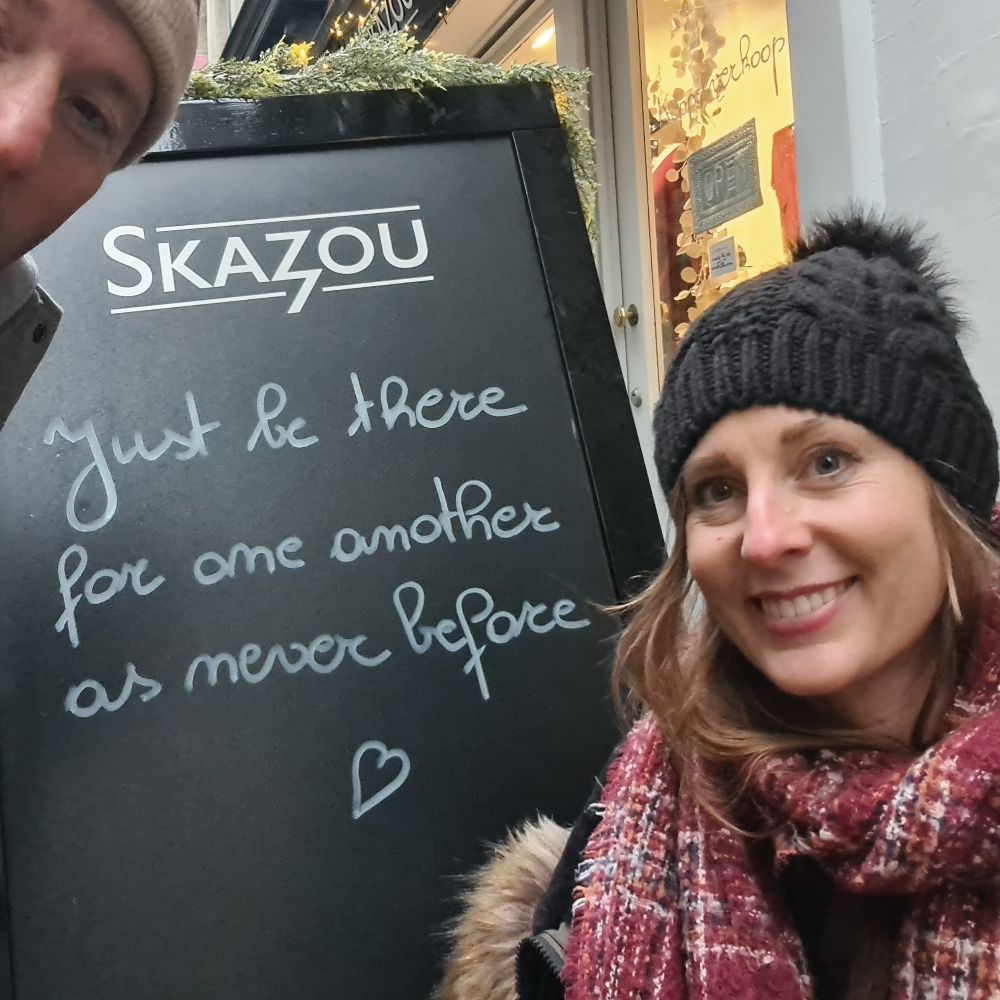 SKAZOU
Just be there
for one another
as never before
verkoop
OPEN